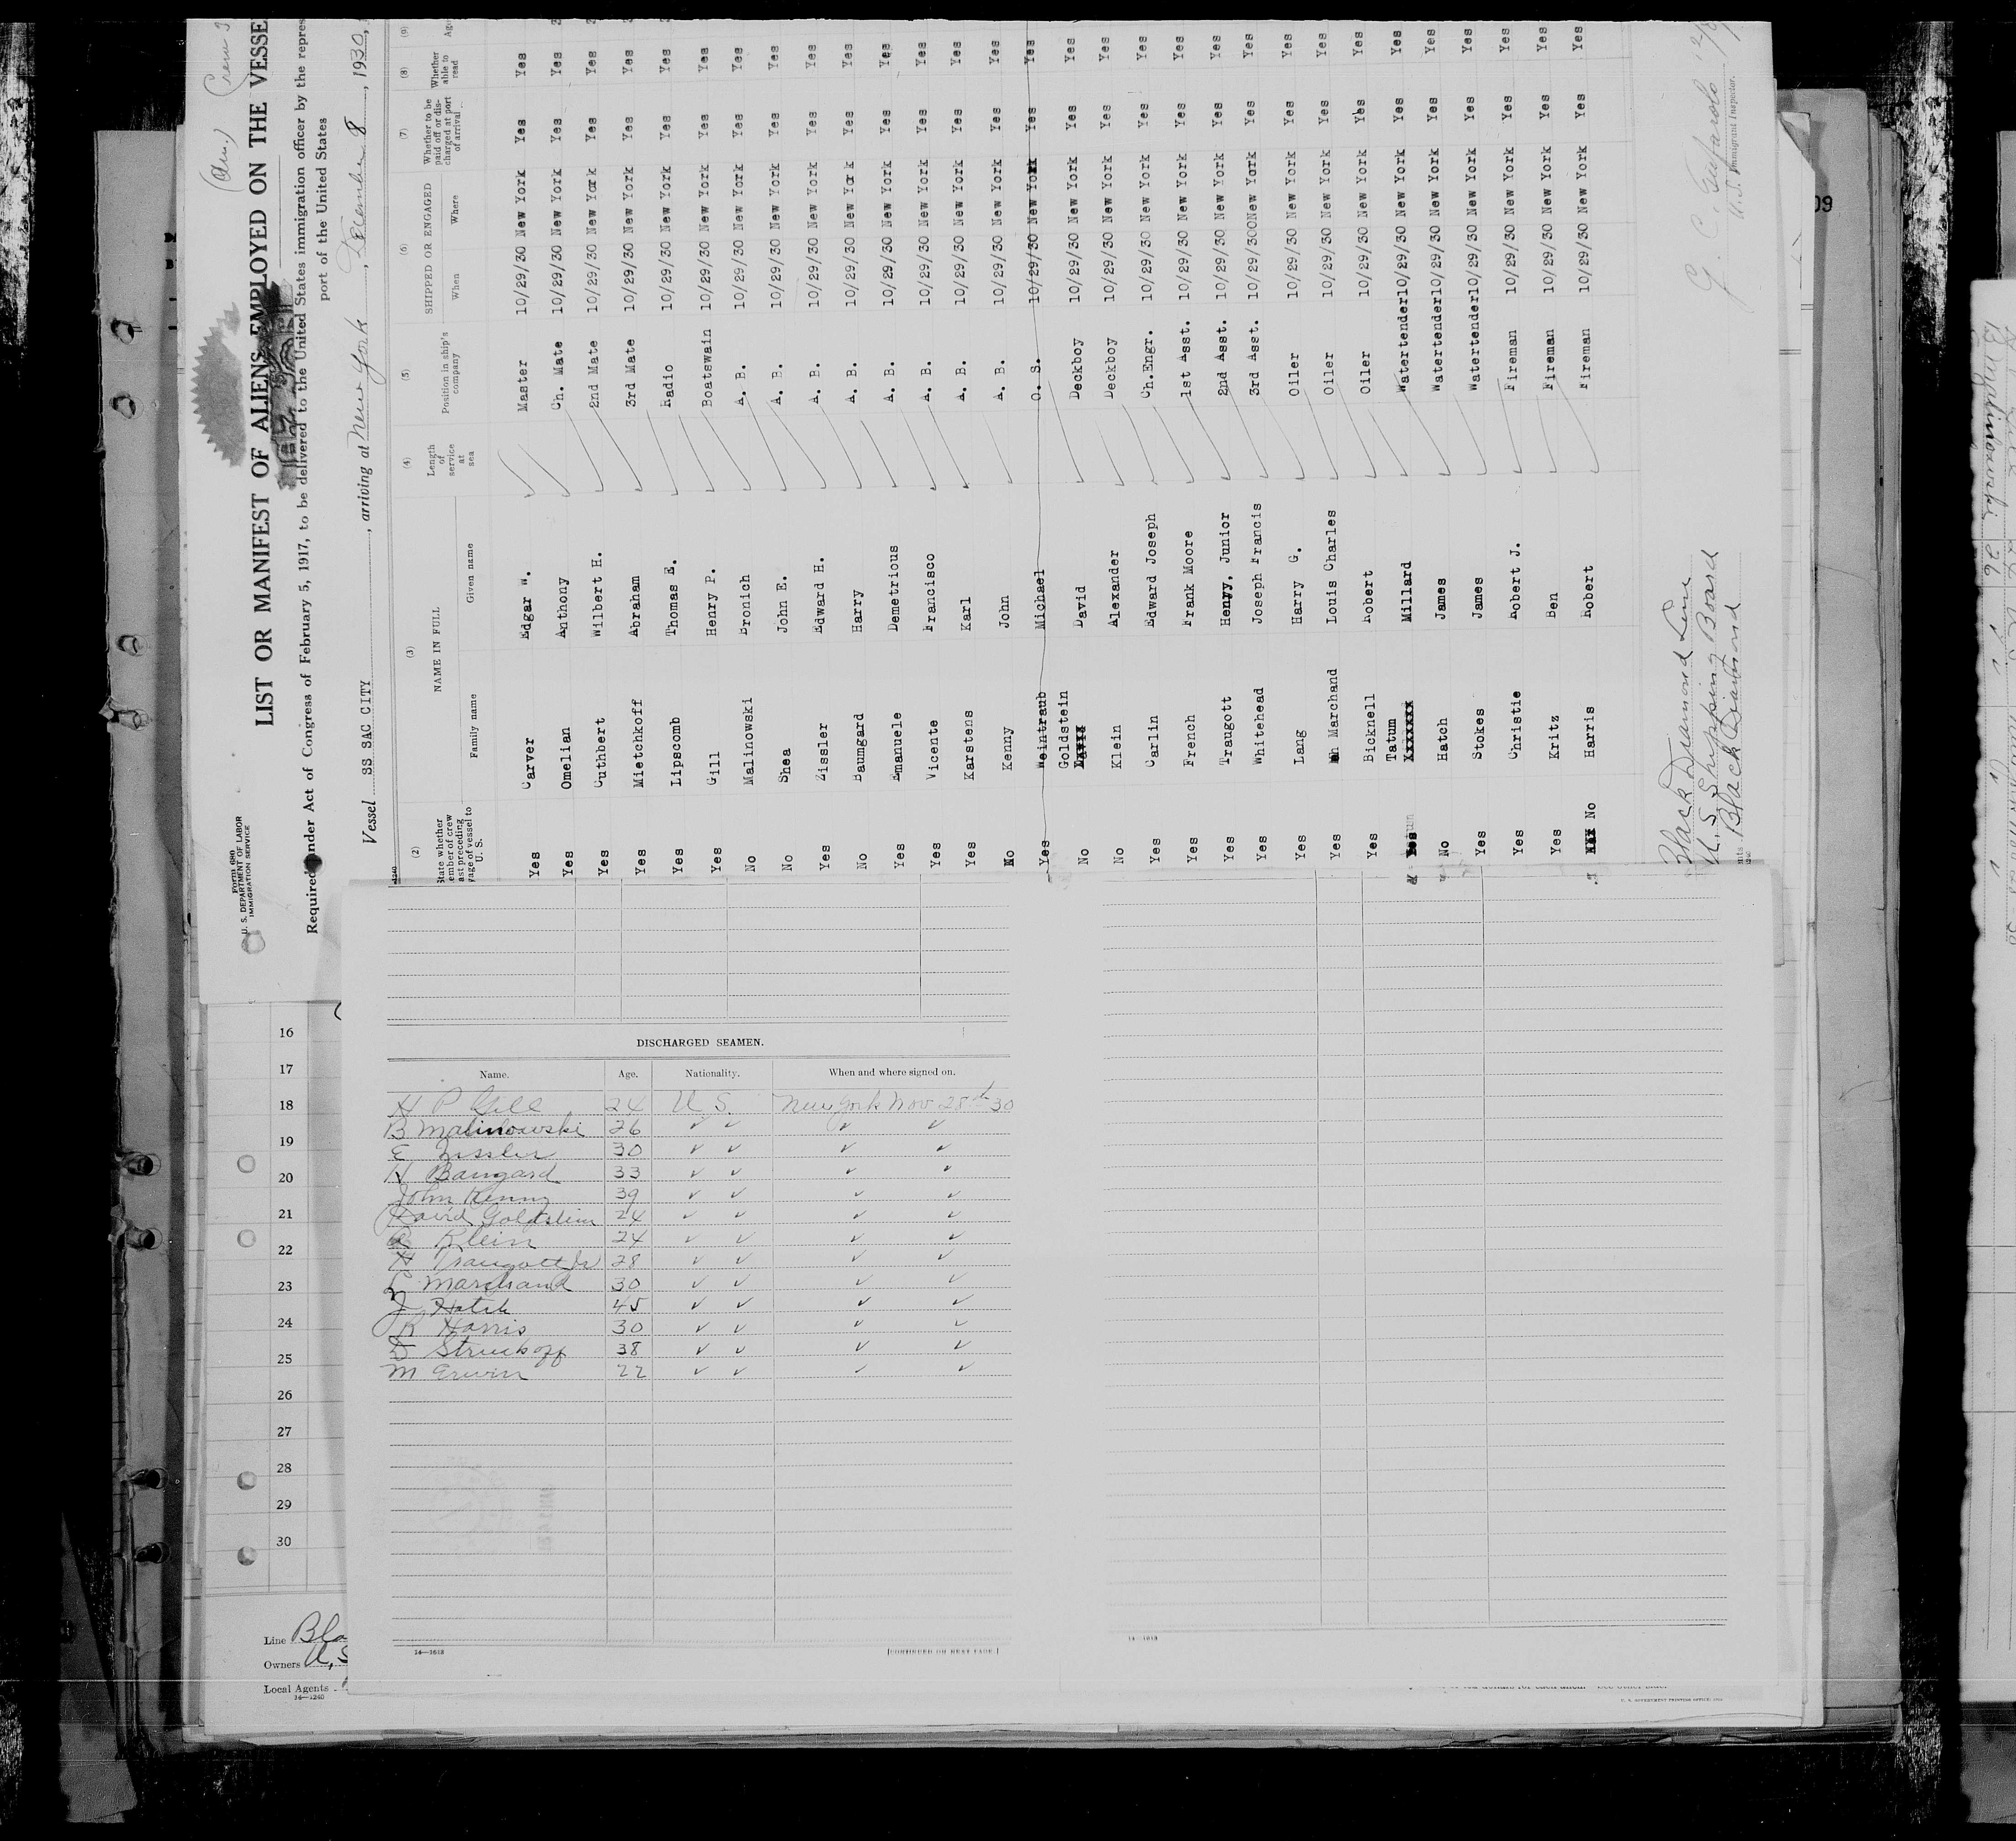 (Am.) Crew
LIST OR MANIFEST OF ALIENS EMPLOYED ON THE VESSE
Form 680
U. S. DEPARTMENT OF LABOR
IMMIGRATION SERVICE
Required under Act of Congress of February 5, 1917, to be delivered to the United States immigration officer by the repres
port of the United States
Vessel SS SAC CITY, arriving at New York, December 8, 1930,
(2) (3) (4) (5) (6) (7) (8) (9)
State whether member of crew last preceding voyage of vessel to U. S.
NAME IN FULL
Family name Given name
Length of service at sea
Position in ship's company
SHIPPED OR ENGAGED
When Where
Whether to be paid off or discharged at port of arrival
Whether able to read
Ag
Yes Carver Edgar W. Master 10/29/30 New York Yes Yes
Yes Omelian Anthony Ch. Mate 10/29/30 New York Yes Yes
Yes Cuthbert Wilbert H. 2nd Mate 10/29/30 New York Yes Yes
Yes Mietchkoff Abraham 3rd Mate 10/29/30 New York Yes Yes
Yes Lipscomb Thomas E. Radio 10/29/30 New York Yes Yes
Yes Gill Henry P. Boatswain 10/29/30 New York Yes Yes
No Malinowski Bronich A. B. 10/29/30 New York Yes Yes
No Shea John E. A. B. 10/29/30 New York Yes Yes
Yes Zissler Edward H. A. B. 10/29/30 New York Yes Yes
No Baumgard Harry A. B. 10/29/30 New York Yes Yes
Yes Emanuele Demetrious A. B. 10/29/30 New York Yes Yes
Yes Vicente Francisco A. B. 10/29/30 New York Yes Yes
Yes Karstens Karl A. B. 10/29/30 New York Yes Yes
No Kenny John A. B. 10/29/30 New York Yes Yes
Yes Weintraub Michael O. S. 10/29/30 New York Yes Yes
No Goldstein David Deckboy 10/29/30 New York Yes Yes
No Klein Alexander Deckboy 10/29/30 New York Yes Yes
Yes Carlin Edward Joseph Ch.Engr. 10/29/30 New York Yes Yes
Yes French Frank Moore 1st Asst. 10/29/30 New York Yes Yes
Yes Traugott Henyy, Junior 2nd Asst. 10/29/30 New York Yes Yes
Yes Whitehead Joseph Francis 3rd Asst. 10/29/300New York Yes Yes
Yes Lang Harry G. Oiler 10/29/30 New York Yes Yes
Yes Marchand Louis Charles Oiler 10/29/30 New York Yes Yes
Yes Bicknell Robert Oiler 10/29/30 New York Yes Yes
Yes Tatum xxxxxxx Millard Watertender10/29/30 New York Yes Yes
No Hatch James Watertender10/29/30 New York Yes Yes
Yes Stokes James Watertender10/29/30 New York Yes Yes
Yes Christie Robert J. Fireman 10/29/30 New York Yes Yes
Yes Kritz Ben Fireman 10/29/30 New York Yes Yes
No Harris Robert Fireman 10/29/30 New York Yes Yes
Black Diamond Line
U. S. Shipping Board
Black Diamond
U. S. Immigrant Inspector.
09
16
17
18
19
20
21
22
23
24
25
26
27
28
29
30
DISCHARGED SEAMEN.
Name. Age. Nationality. When and where signed on.
H P Gill 24 U S. New York Nov 28th 30
B Malinowski 26 ✓ ✓ ✓ ✓
E Zissler 30 ✓ ✓ ✓ ✓
H Baugard 33 ✓ ✓ ✓ ✓
John Kenny 39 ✓ ✓ ✓ ✓
David Goldstein 24 ✓ ✓ ✓ ✓
A Klein 24 ✓ ✓ ✓ ✓
H Traugott Jr 28 ✓ ✓ ✓ ✓
L Marchand 30 ✓ ✓ ✓ ✓
J Hatch 45 ✓ ✓ ✓ ✓
R Harris 30 ✓ ✓ ✓ ✓
D Struckoff 38 ✓ ✓ ✓ ✓
M Erwin 22 ✓ ✓ ✓ ✓
14—1613
[CONTINUED ON NEXT PAGE.]
14—1613
Line Bla
Owners U. S
Local Agents
14—1240
U. S. GOVERNMENT PRINTING OFFICE